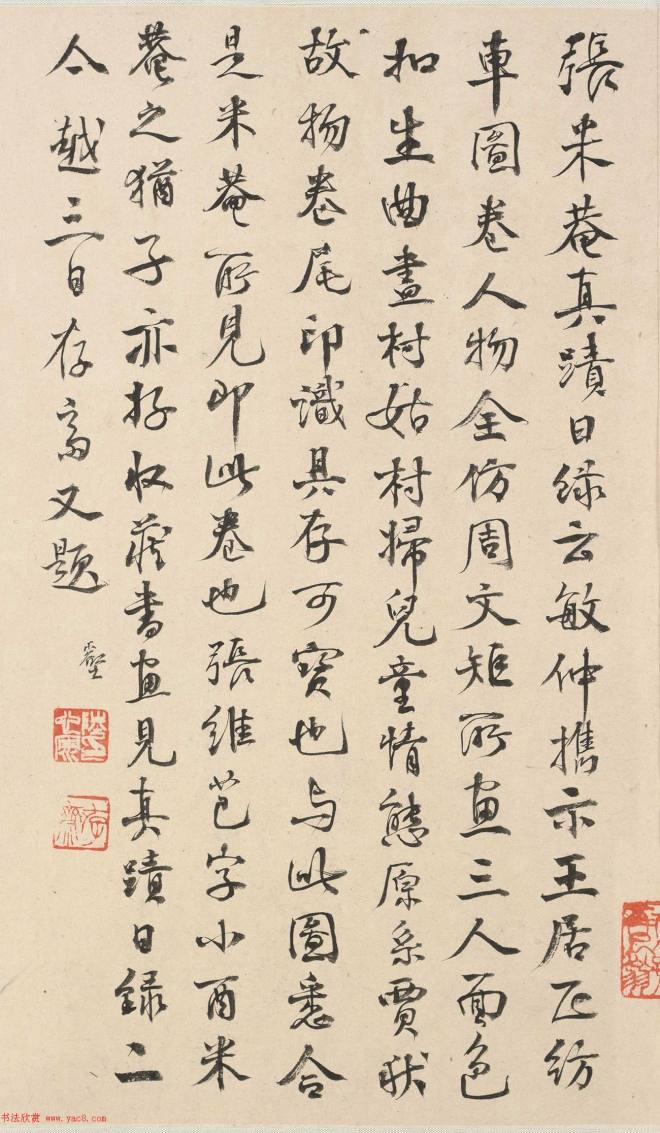 張米菴真蹟日錄云敏仲攜示王居正紡
車圖卷人物全仿周文矩所畫三人面色
如生曲盡村姑村婦兒童情態原系賈秋壑
故物卷尾印識具存可寶也与此圖悉合
是米菴所見即此卷也張維芑字小酉米
菴之猶子亦好收藏書畫見真蹟日錄二
人越三日存齋又題
书法欣赏 www.yac8.com